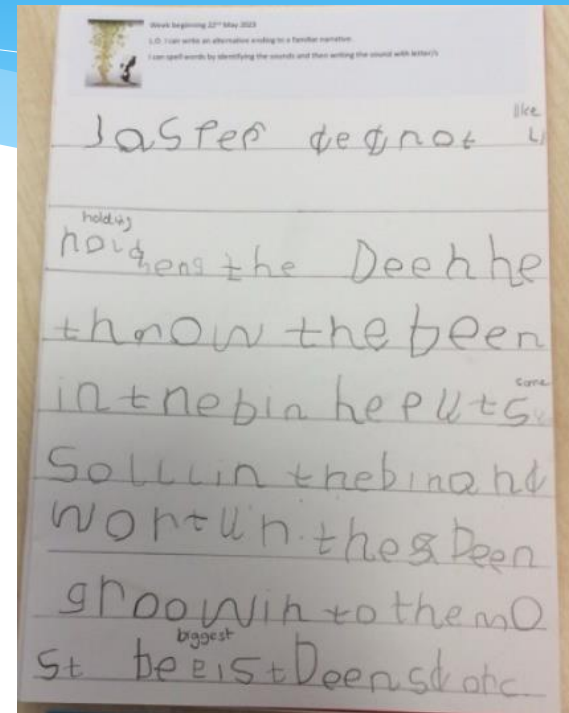 Week beginning 22nd May 2023
L.O. I can write an alternative ending to a familiar narrative.
I can spell words by identifying the sounds and then writing the sound with letter/s
like
Jasper ded not
holding
holdheng the Deen he
thnow the been
some
in the bin he puts
Solllin the bin and
wortun. the Deen
groowin to the mo
biggest
st beeist Deenst